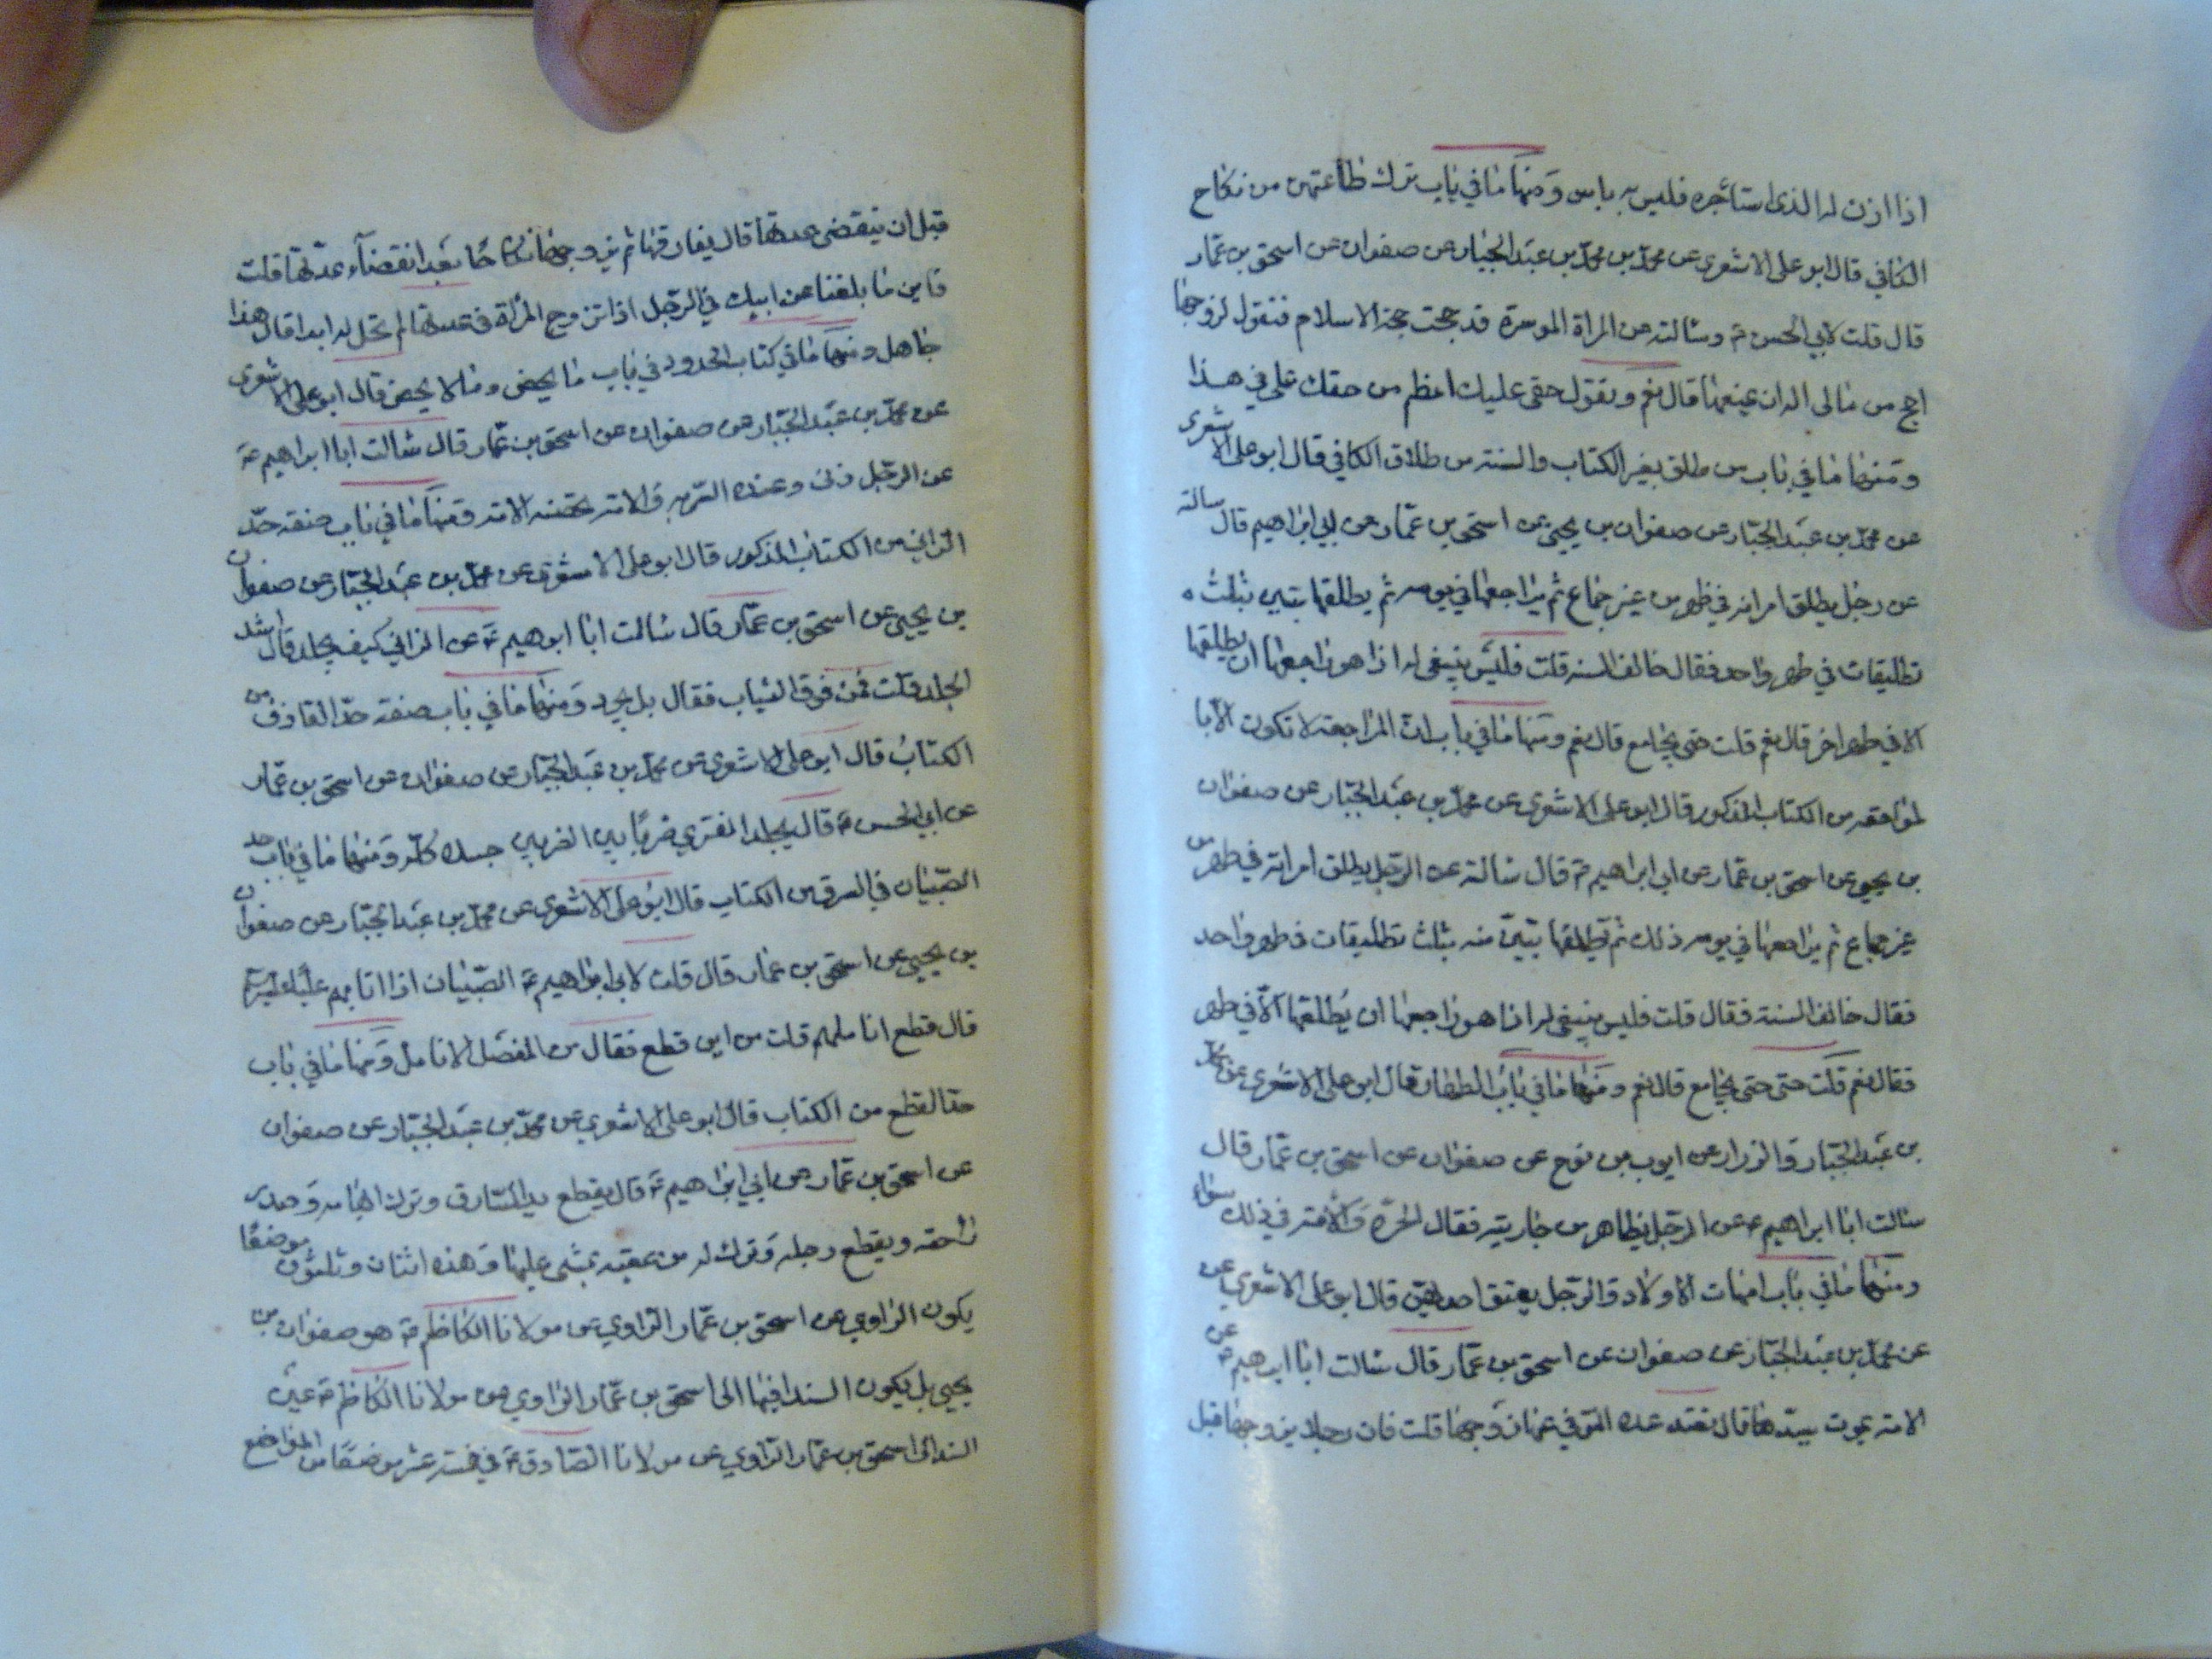 اذا اذن له الذى استأجره فليس به باس ومنها ما في باب ترك طاعتهن من نكاح
الكافي قال ابو على الاشعرى عن محمد بن محمد بن عبد الجبار عن صفوان عن اسحق بن عمار
قال قلت لابي الحسن ع وسالته عن المراة الموسرة قد حجت حجة الاسلام فتقول لزوجها
احج من مالى اله ان يمنعها قال نعم ويقول حقى عليك اعظم من حقك على في هذا
ومنها ما في باب من طلق بغير الكتاب والسنة من طلاق الكافي قال ابو على الاشعرى
عن محمد بن عبد الجبار عن صفوان بن يحيى عن اسحق بن عمار عن ابي ابراهيم قال سالته
عن رجل يطلق امراته في طهر من غير جماع ثم يراجعها في يومه ثم يطلقها تبين بثلث
تطليقات في طهر واحد فقال خالف السنه قلت فليس ينبغى له اذا هو راجعها ان يطلقها
الا في طهر اخر قال نعم قلت حتى يجامع قال نعم ومنها ما في باب ان المراجعة لا تكون الا با
لمواقعه من الكتاب المذكور قال ابو على الاشعرى عن محمد بن عبد الجبار عن صفوان
بن يحيى عن اسحق بن عمار عن ابي ابراهيم ع قال سالته عن الرجل يطلق امراته في طهر من
غير جماع ثم يراجعها في يومه ذلك ثم يطلقها تبين منه بثلث تطليقات في طهر واحد
فقال خالف السنة فقال قلت فليس ينبغى له اذا هو راجعها ان يُطلقها الّا في طهر
فقال نعم قلت حتى حتى يجامع قال نعم ومنها ما في باب الظهار قال ابو على الاشعرى عن محمد
بن عبد الجبار والرزاز عن ايوب بن نوح عن صفوان عن اسحق بن عمار قال
سالت ابا ابراهيم ع عن الرجل يظاهر من جاريته فقال الحرة والامة في ذلك سواء
ومنها ما في باب امهات الاولاد والرجل يعتق احديهن قال ابو على الاشعري عن
عن محمد بن عبد الجبار عن صفوان عن اسحق بن عمار قال سالت ابا ابرهيم ع عن
الامة يموت سيدها قال تعتد عدة المتوفي عنها زوجها قلت فان رجلا يزوجها قبل
قبل ان تنقضى عدتها قال يفارقها ثم يتزوجها نكاحًا بعد انقضآء عدتها قلت
فاين ما بلغنا عن ابيك في الرجل اذا تزوج المرأة في عدتها لم تحل له ابدا قال هذا
جاهل ومنها ما في كتاب الحدود في باب ما يحصن وما لا يحصن قال ابو على الاشعرى
عن محمد بن عبد الجبار عن صفوان عن اسحق بن عمار قال سالت ابا ابراهيم ع
عن الرجل زنى وعنده السرية والامة تحصنه الامة ومنها ما في باب صفة حد
الزاني من الكتاب المذكور قال ابو على الاشعرى عن محمد بن عبد الجبار عن صفوان
بن يحيى عن اسحق بن عمار قال سالت ابا ابرهيم ع عن الزاني كيف يجلد قال اشد
الجلد قلت فمن فوق الثياب فقال بل يجرد ومنها ما في باب صفة حد القاذف من
الكتاب قال ابو على الاشعرى عن محمد بن عبد الجبار عن صفوان عن اسحق بن عمار
عن ابي الحسن ع قال يجلد المفترى ضربًا بين الضربين جسده كله ومنها ما في باب حد
الصبيان في السرقة من الكتاب قال ابو على الاشعرى عن محمد بن عبد الجبار عن صفوان
بن يحيى عن اسحق بن عمار قال قلت لابي ابراهيم ع الصبيان اذا اتا بهم
قال قطع اناملهم قلت من اين قطع فقال من المفصل الانامل ومنها ما في باب
حد القطع من الكتاب قال ابو على الاشعري عن محمد بن عبد الجبار عن صفوان
عن اسحق بن عمار عن ابي ابراهيم ع قال يقطع يد السارق وترك ابهامه وصدر
راحته ويقطع رجله وترك له من عقبه يمشى عليها وهذه اثنان وثلثون موضعًا
يكون الراوي عن اسحق بن عمار الراوي عن مولانا الكاظم ع هو صفوان بن
يحيى بل يكون السند فيها الى اسحق بن عمار الراوي عن مولانا الكاظم ع عين
السند الى اسحق بن عمار الراوي عن مولانا الصادق ع في خمسة عشر موضعًا من المواضع